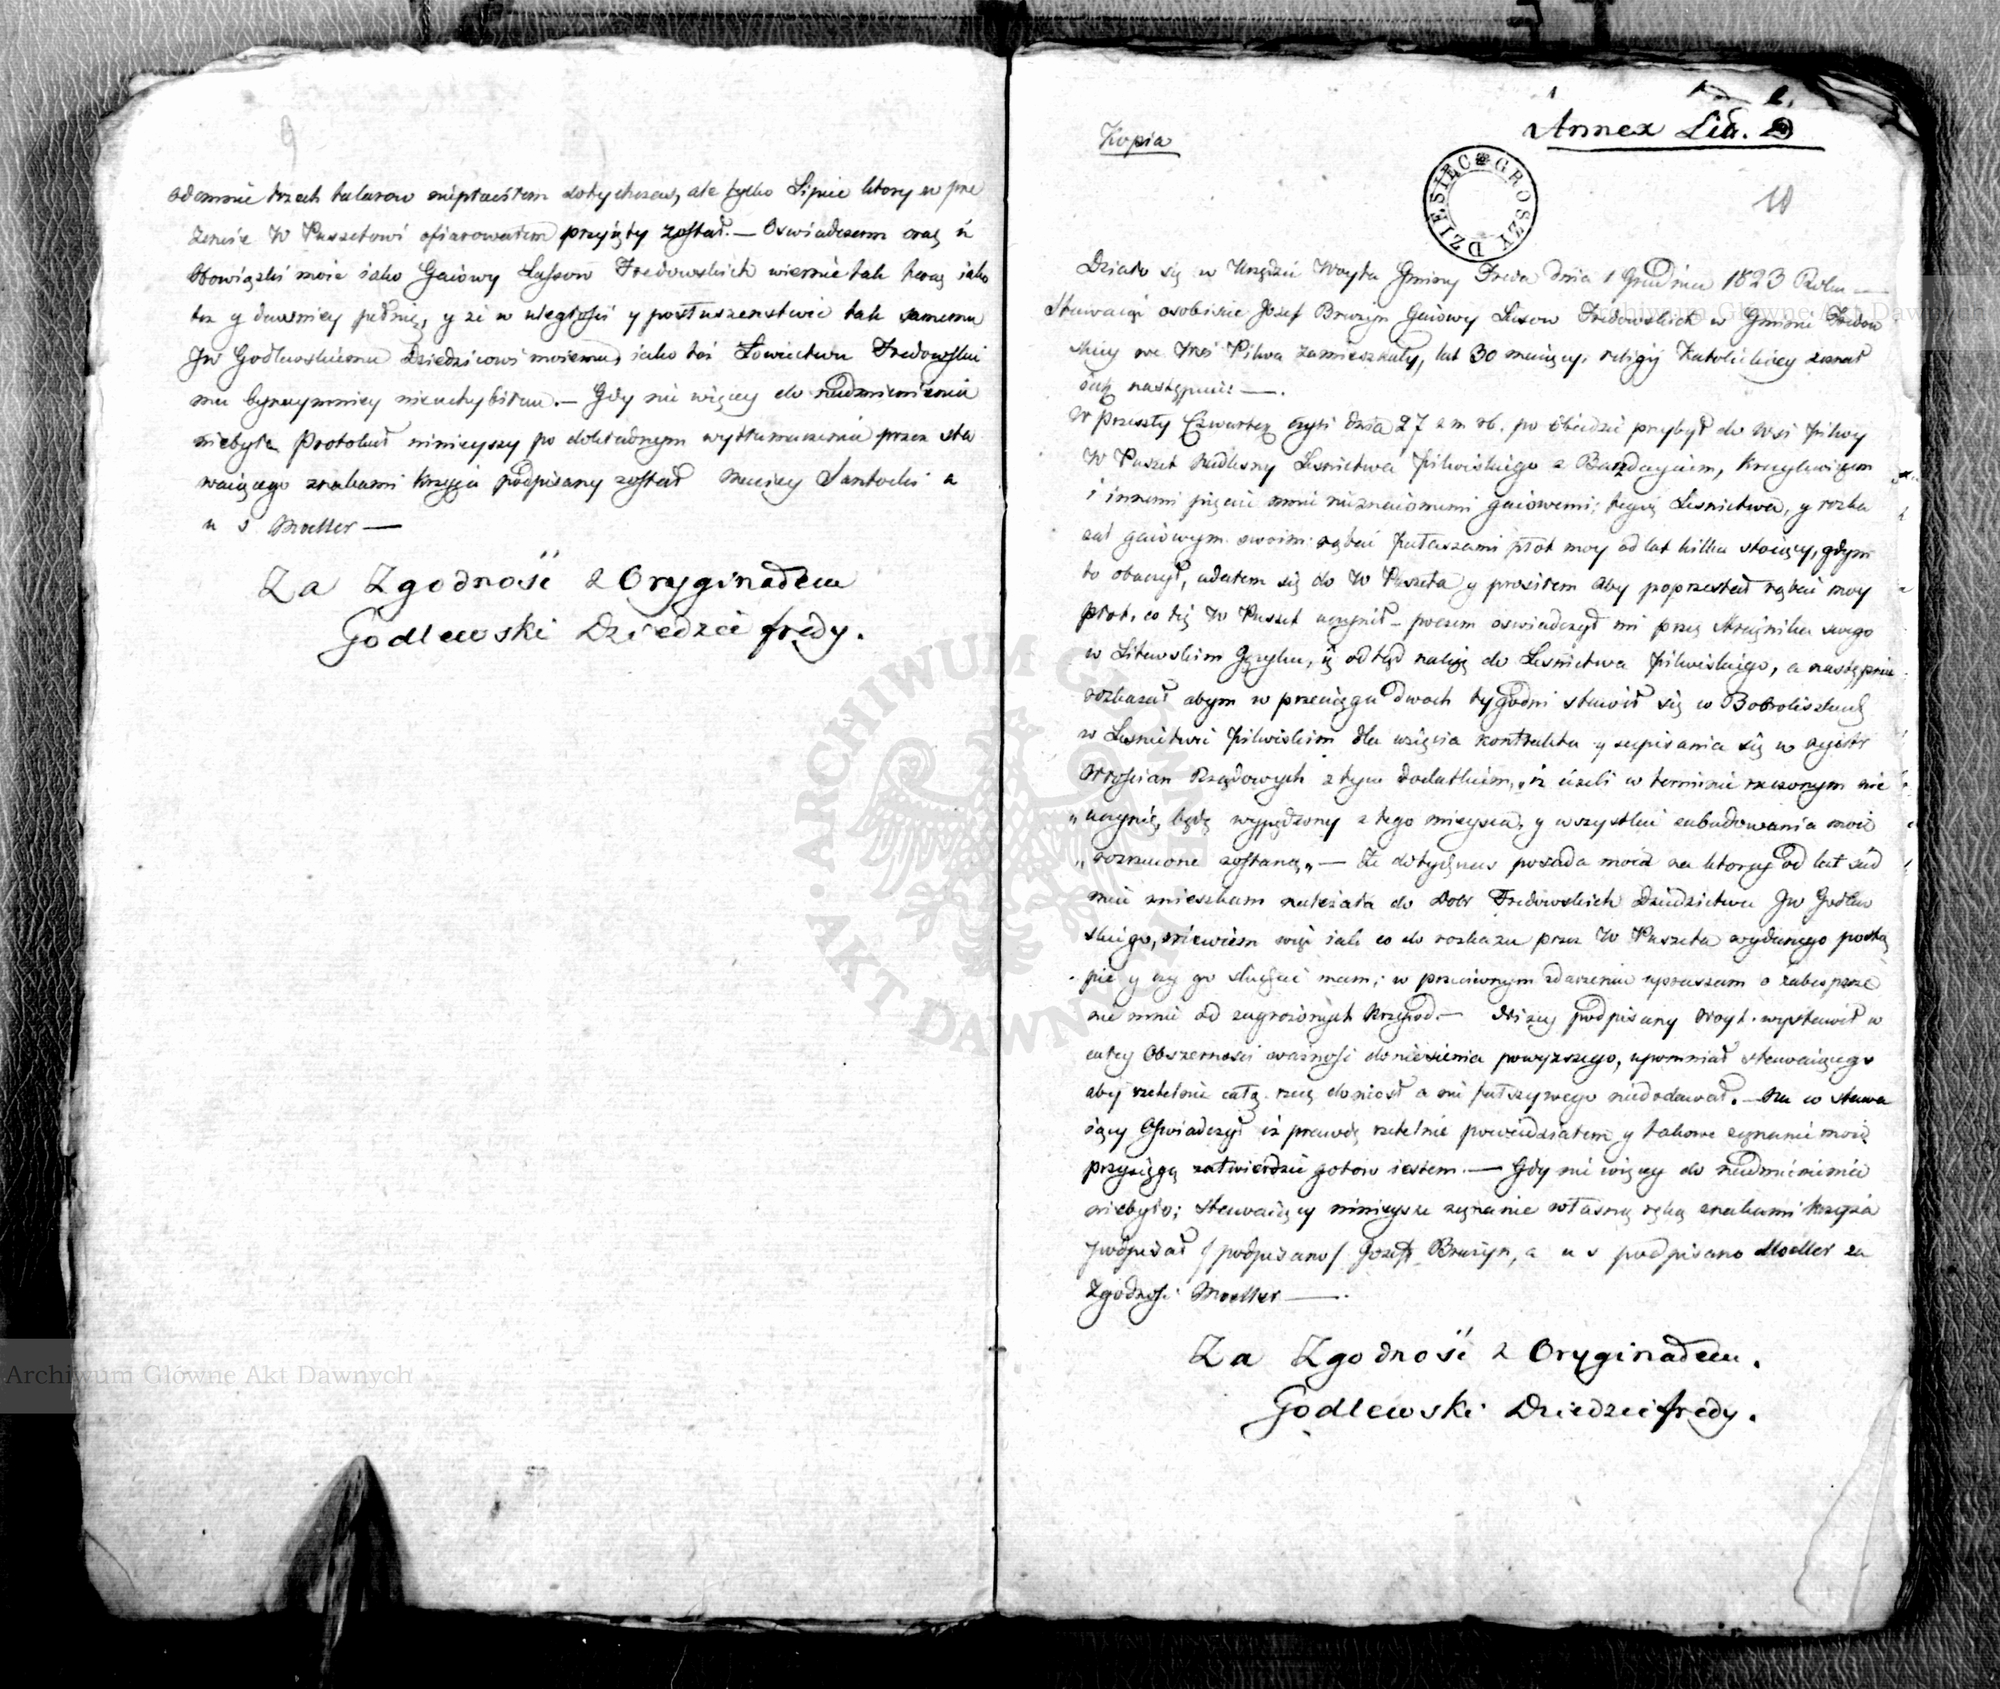 9
odemnie trzech talarow niepłaciłem dotychczas, ale tylko Lipiec ktory w pre
zencie W Paszetowi ofiarowałem przyięty został. — Oswiadczam oraz iż
Obowiązki moie iako Gaiowy Lassow Fredowskich wiernie tak teraz iako
też y dawniey pełnię, y że w uległości y posłuszenstwie tak samemu
JW Godlewskiemu Dziedzicowi moiemu, iako też Łowictwu Fredowskie
mu bynaymniey nieuchybiłem. — Gdy nic więcey do nadmienienia
niebyło Protokuł ninieyszy po dokładnym wytłumaczeniu przez sta
waiącego znakami krzyża podpisany został Maciey Santocki a
u s Moeller —
Za Zgodność z Oryginałem
Godlewski Dziedzic Fredy.
Kopia
Annex Lit.
DZIESIĘC GROSZY
10
Działo się w Urzędzie Woyta Gminy Freda dnia 1 Grudnia 1823 Roku —
Stawaiąc osobiscie Józef Bruzyn Gaiowy Lasow Fredowskich w Gminie Fredow
skiey we Wsi Pilwa zamieszkały, lat 30 maiący, religij Katolickiey zeznał
iak następuie: —.
W przeszły Czwartek czyli dnia 27 z m rb. po obiedzie przybył do Wsi Pilwy
W Paszet Nadlesny Lesnictwa Pilwiskiego z
i innemi pięcią mnie nieznaiomemi gaiowemi, tegoż Lesnictwa, y rozka
zał gaiowym swoim rąbać Pałaszami płot moy od lat kilku stoiący, gdym
to obaczył, udałem się do W Paszeta y prosiłem aby poprzestał rąbać moy
Płot, co też W Paszet uczynił — poczem oswiadczył mi przez strażnika swego
w Litewskim Języku, iż odtąd należę do Lesnictwa Pilwiskiego, a następnie
rozkazał abym w przeciągu dwoch tygodni stawił się w
w Lesnictwie Pilwiskim dla wzięcia kontraktu y zapisania się w rejestr
Włoscian Rządowych z tym dodatkiem, „iż ieżeli w terminie rzeczonym nie
„uczynię, będę wypędzony z tego mieysca, y wszystkie zabudowania moie
„rozrzucone zostaną„ — Że dotychczas posada moia na ktorey od lat sied
miu mieszkam należała do Dobr Fredowskich Dziedzictwa JW Godlew
skiego, niewiem więc iak co do rozkazu przez W Paszeta wydanego postą
pić y czy go słuchać mam; w przeciwnym zdarzeniu upraszam o zabespiecze
nie mnie od zagrożonych krzywd. — Niżey podpisany Woyt wystawił w
całey Obszernosci ważność doniesienia powyższego, upomniał stawaiącego
aby rzetelnie całą rzecz doniosł a nic fałszywego niedodawał. — Na co stawa
iący Oswiadczył iż prawdę rzetelnie powiedziałem y takowe zeznanie moie
przysięgą zatwierdzić gotow iestem. — Gdy nic więcey do nadmienienia
niebyło; stawaiący ninieysze zeznanie własną ręką znakami krzyża
podpisał /podpisano/ Jozef Bruzyn, a u s podpisano Moeller za
Zgodność Moeller —.
Za Zgodność z Oryginałem.
Godlewski Dziedzic Fredy.
ARCHIWUM GŁÓWNE AKT DAWNYCH
Archiwum Główne Akt Dawnych
Archiwum Główne Akt Dawnych